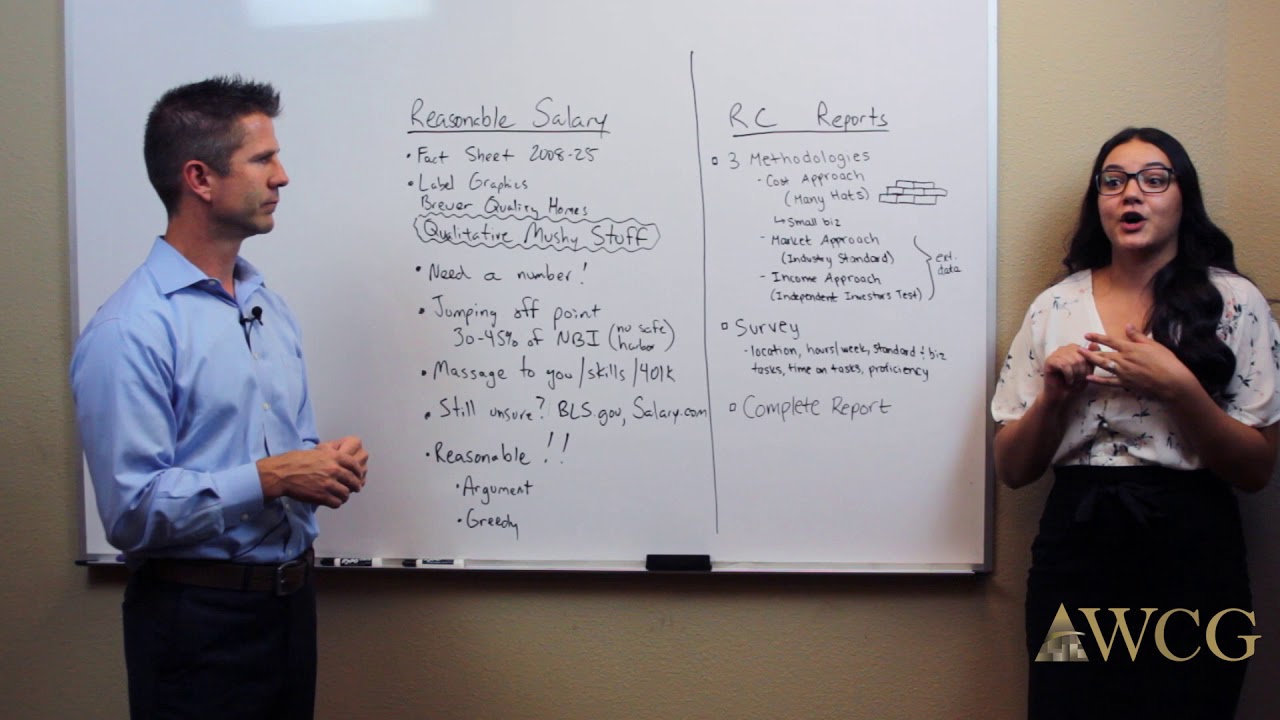 Reasonable Salary
• Fact Sheet 2008-25
• Label Graphics
Brewer Quality Homes
Qualitative Mushy Stuff
• Need a number!
• Jumping off point
30-45% of NBI (no safe harbor)
• Massage to you/skills/401k
• Still unsure? BLS.gov, Salary.com
• Reasonable!!
• Argument
• Greedy
RC Reports
▫ 3 Methodologies
- Cost Approach
(Many Hats)
↳ Small biz
- Market Approach
(Industry Standard)
- Income Approach
(Independent Investors Test)
ext. data
▫ Survey
- location, hours/week, standard & biz
tasks, time on tasks, proficiency
▫ Complete Report
AWCG